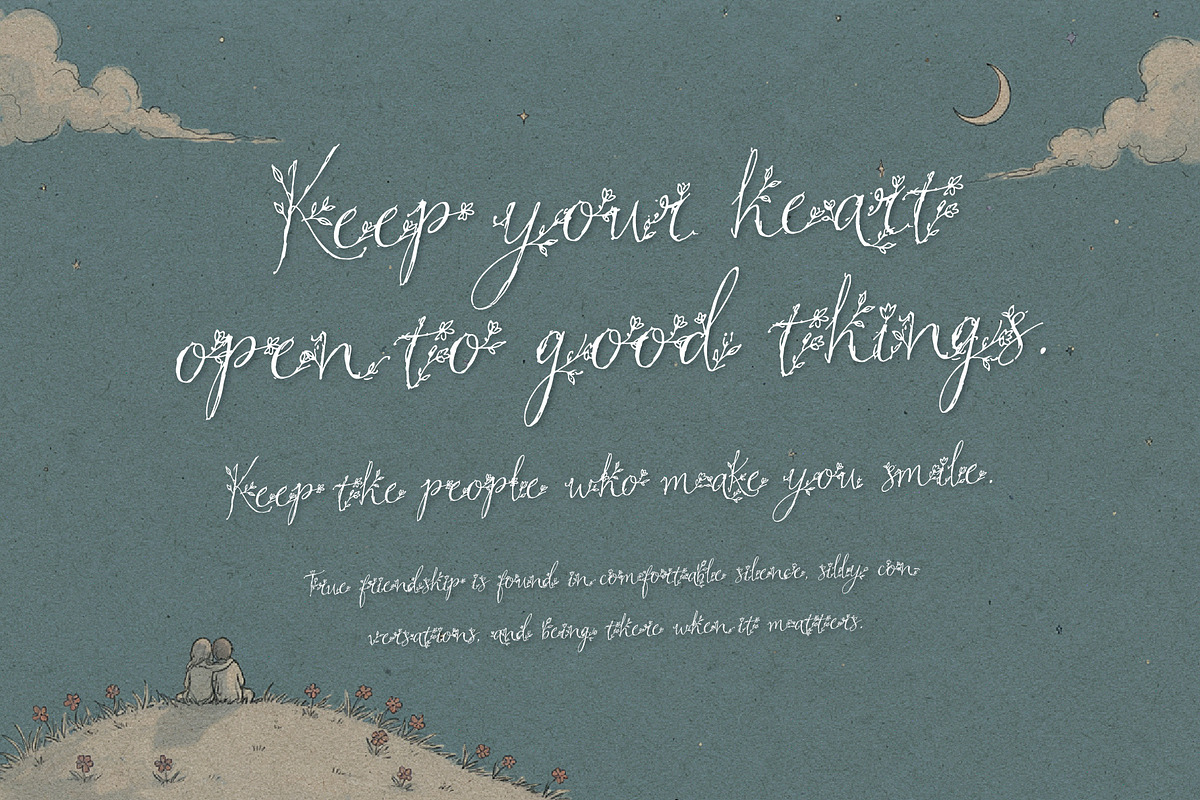 Keep your heart
open to good things.
Keep the people who make you smile.
True friendship is found in comfortable silence, silly con
versations, and being there when it matters.